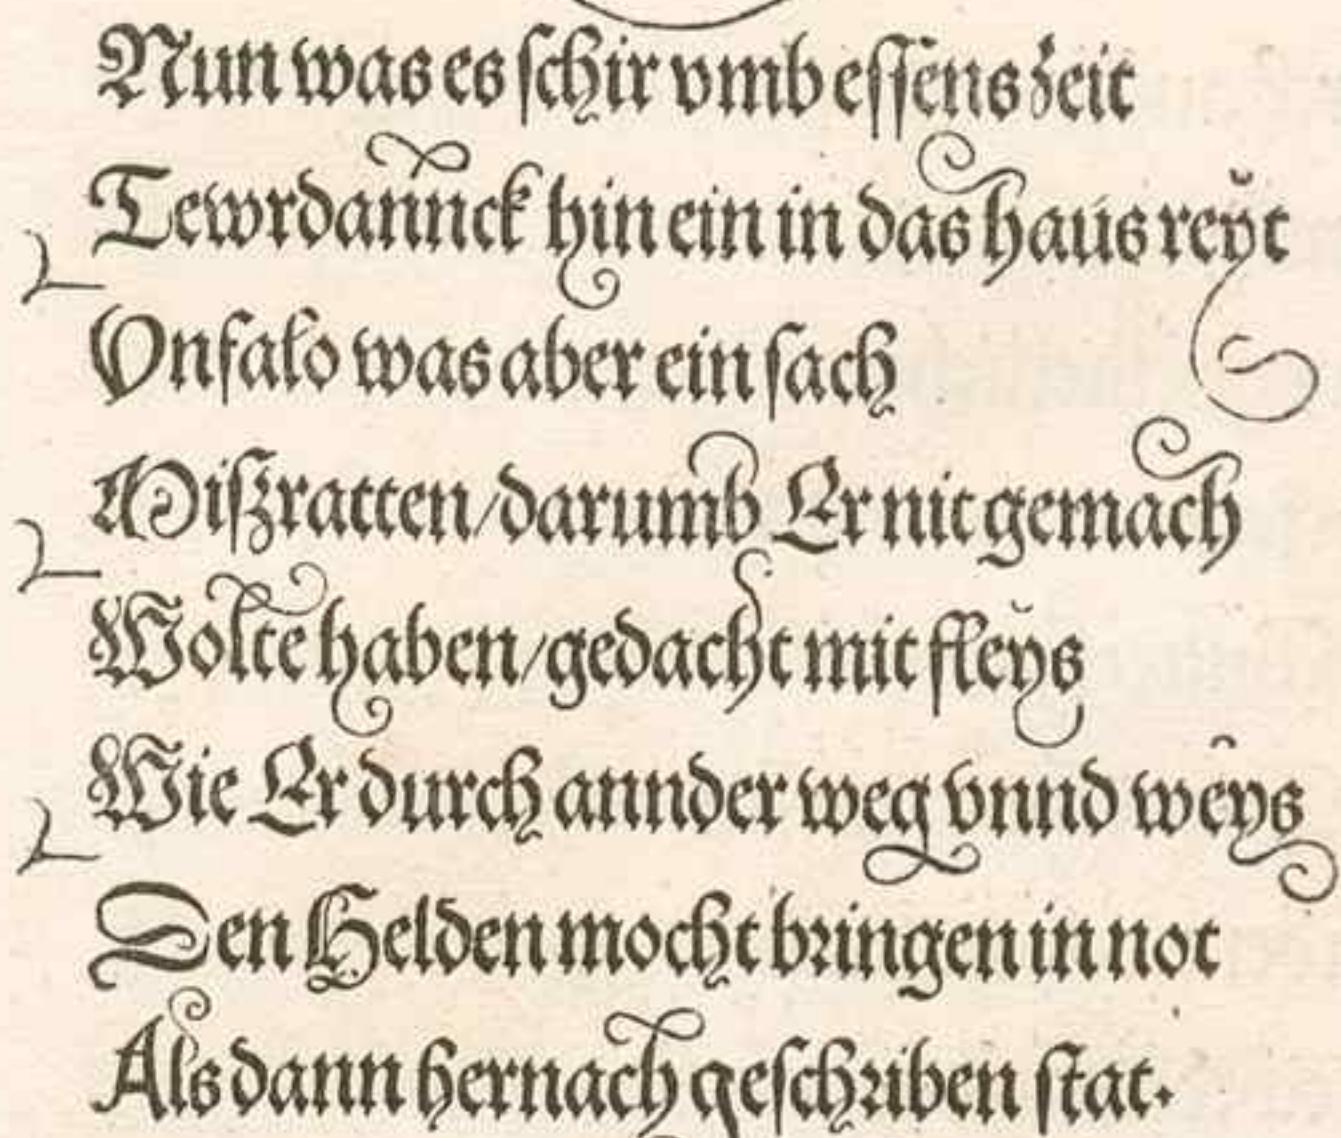 Nun was es ſchir vmb eſſens zeit
Tewrdannck hin ein in das haus reÿt
Vnfalo was aber ein ſach
Miſzratten/darumb Er nit gemach
Wolte haben/gedacht mit fleÿs
Wie Er durch annder weg vnnd weÿs
Den Helden mocht bringen in not
Als dann hernach geſchriben ſtat.